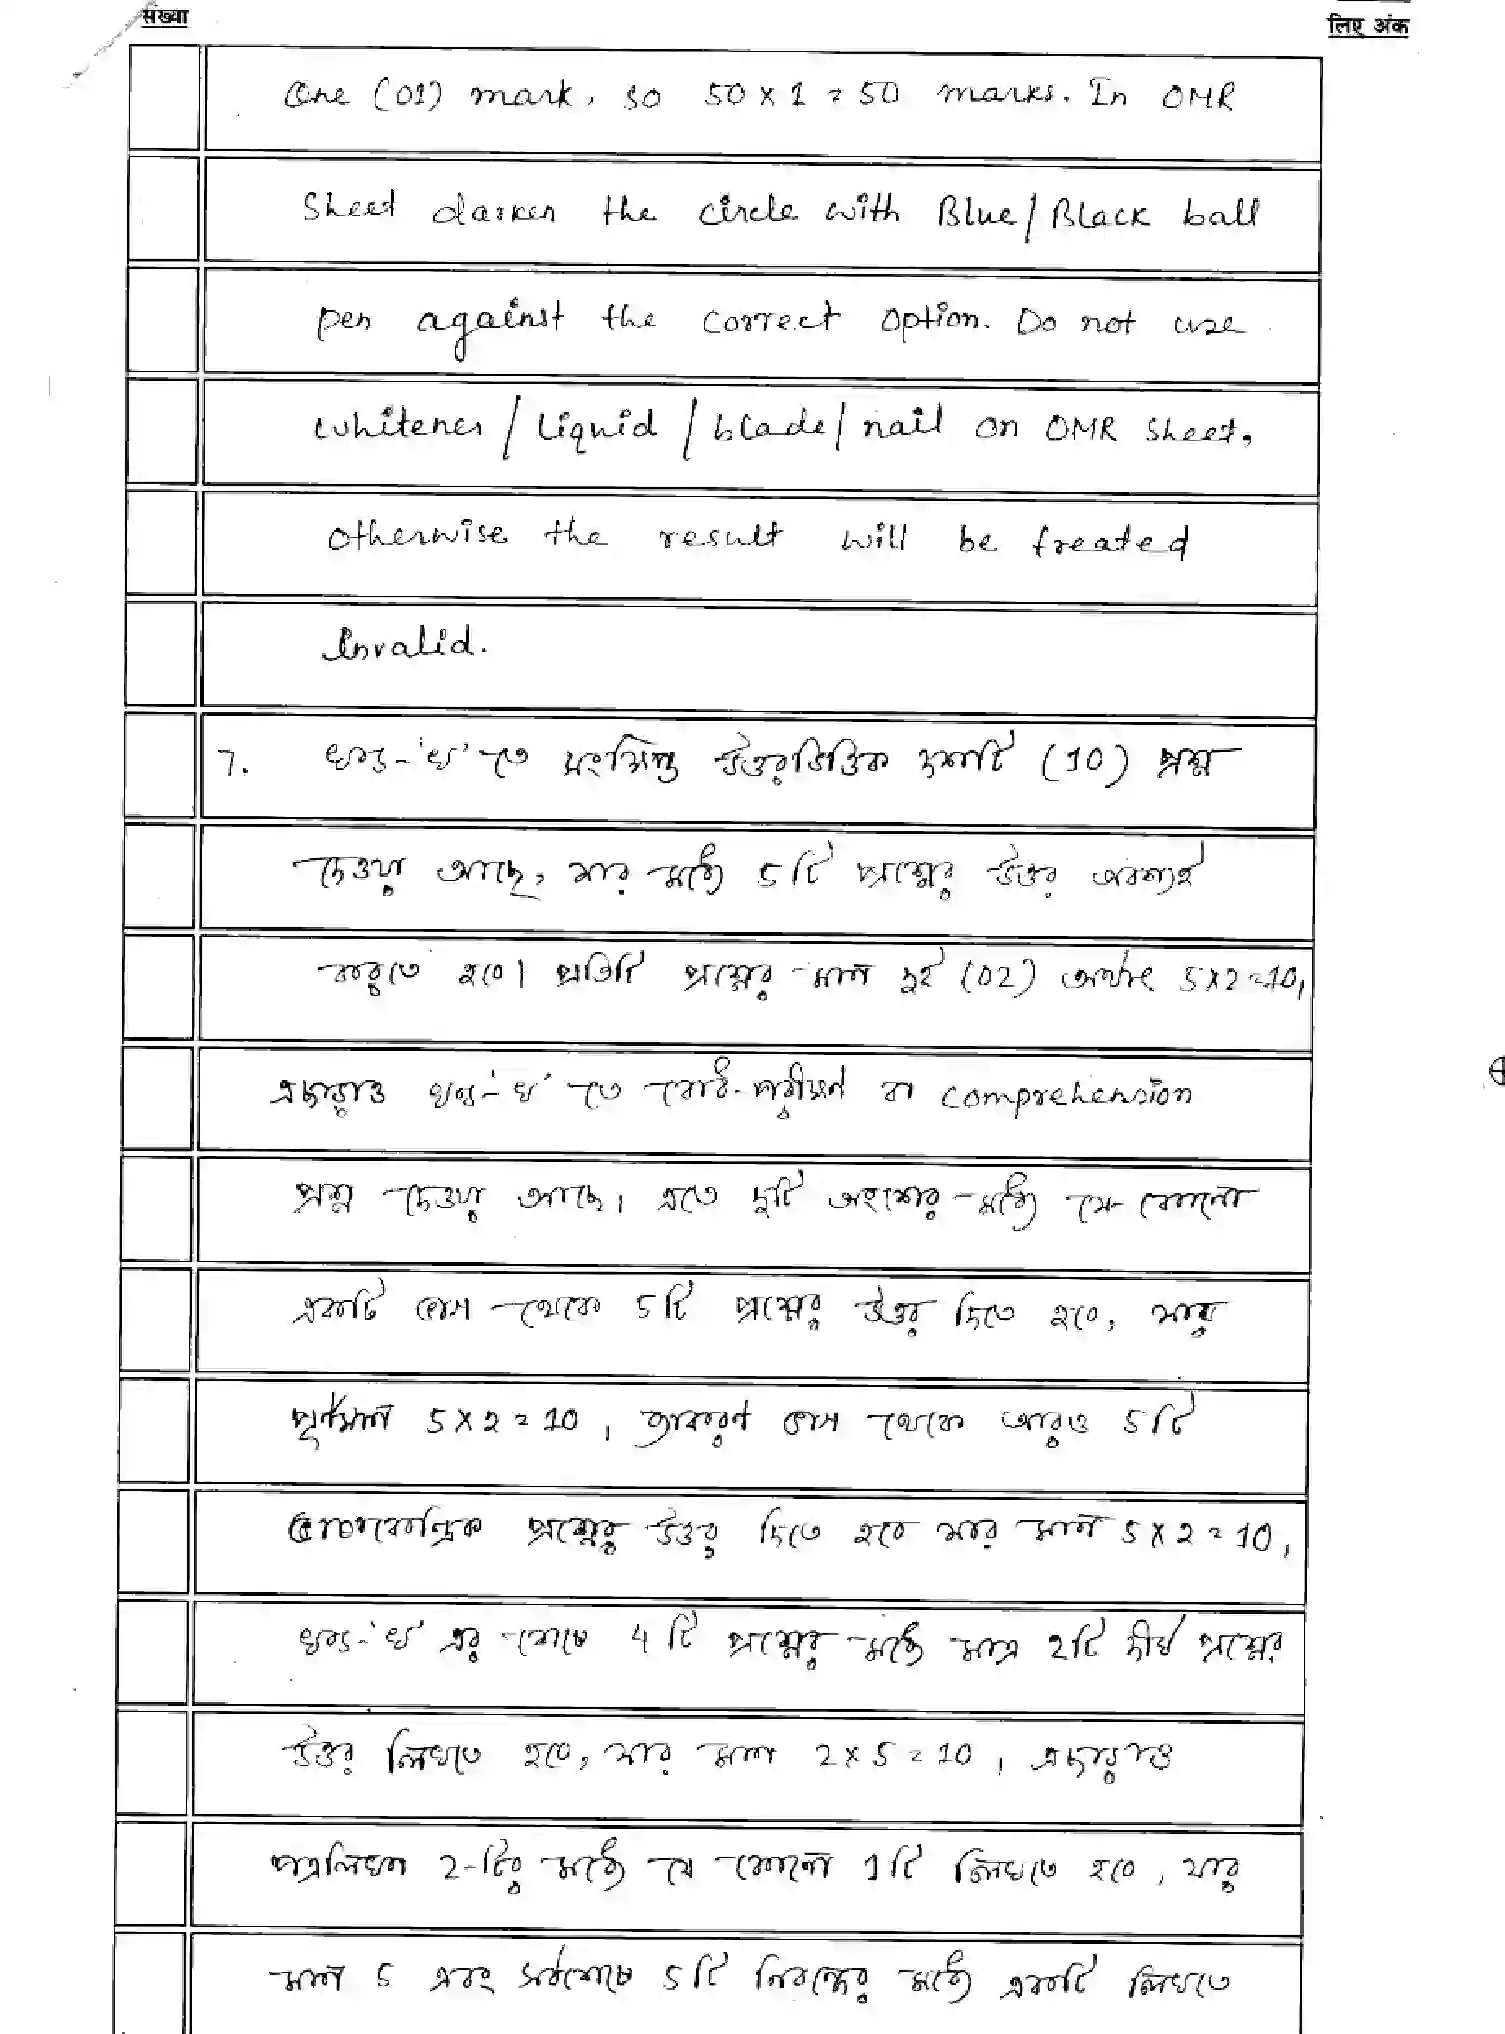 संख्या
लिए अंक
One (01) mark, so 50 x 1 = 50 marks. In OMR
Sheet darken the circle with Blue/Black ball
pen against the correct option. Do not use
Whitener/Liquid/blade/nail on OMR sheet,
otherwise the result will be treated
Invalid.
7. খণ্ড-'খ' তে সংক্ষিপ্ত উত্তরভিত্তিক দশটি (10) প্রশ্ন
দেওয়া আছে, যার মধ্যে 5টি প্রশ্নের উত্তর অবশ্যই
করতে হবে। প্রতিটি প্রশ্নের মান দুই (02) অর্থাৎ 5x2=10,
এছাড়াও খণ্ড-'খ' তে বোধ-পরীক্ষণ বা comprehension
প্রশ্ন দেওয়া আছে। এতে দুটি অংশের মধ্যে যে কোনো
একটি অংশ থেকে 5টি প্রশ্নের উত্তর দিতে হবে, যার
পূর্ণমান 5x2=10, ব্যাকরণ অংশ থেকে আরও 5টি
প্রশ্নের উত্তর দিতে হবে যার মান 5x2=10,
খণ্ড-'খ' এর শেষে 4টি প্রশ্নের মধ্যে মাত্র 2টি দীর্ঘ প্রশ্নের
উত্তর লিখতে হবে, যার মান 2x5=10, এছাড়াও
পত্রলিখন 2-টির মধ্যে যে কোনো 1টি লিখতে হবে, যার
মান 5 এবং সর্বশেষে 5টি নিবন্ধের মধ্যে একটি লিখতে